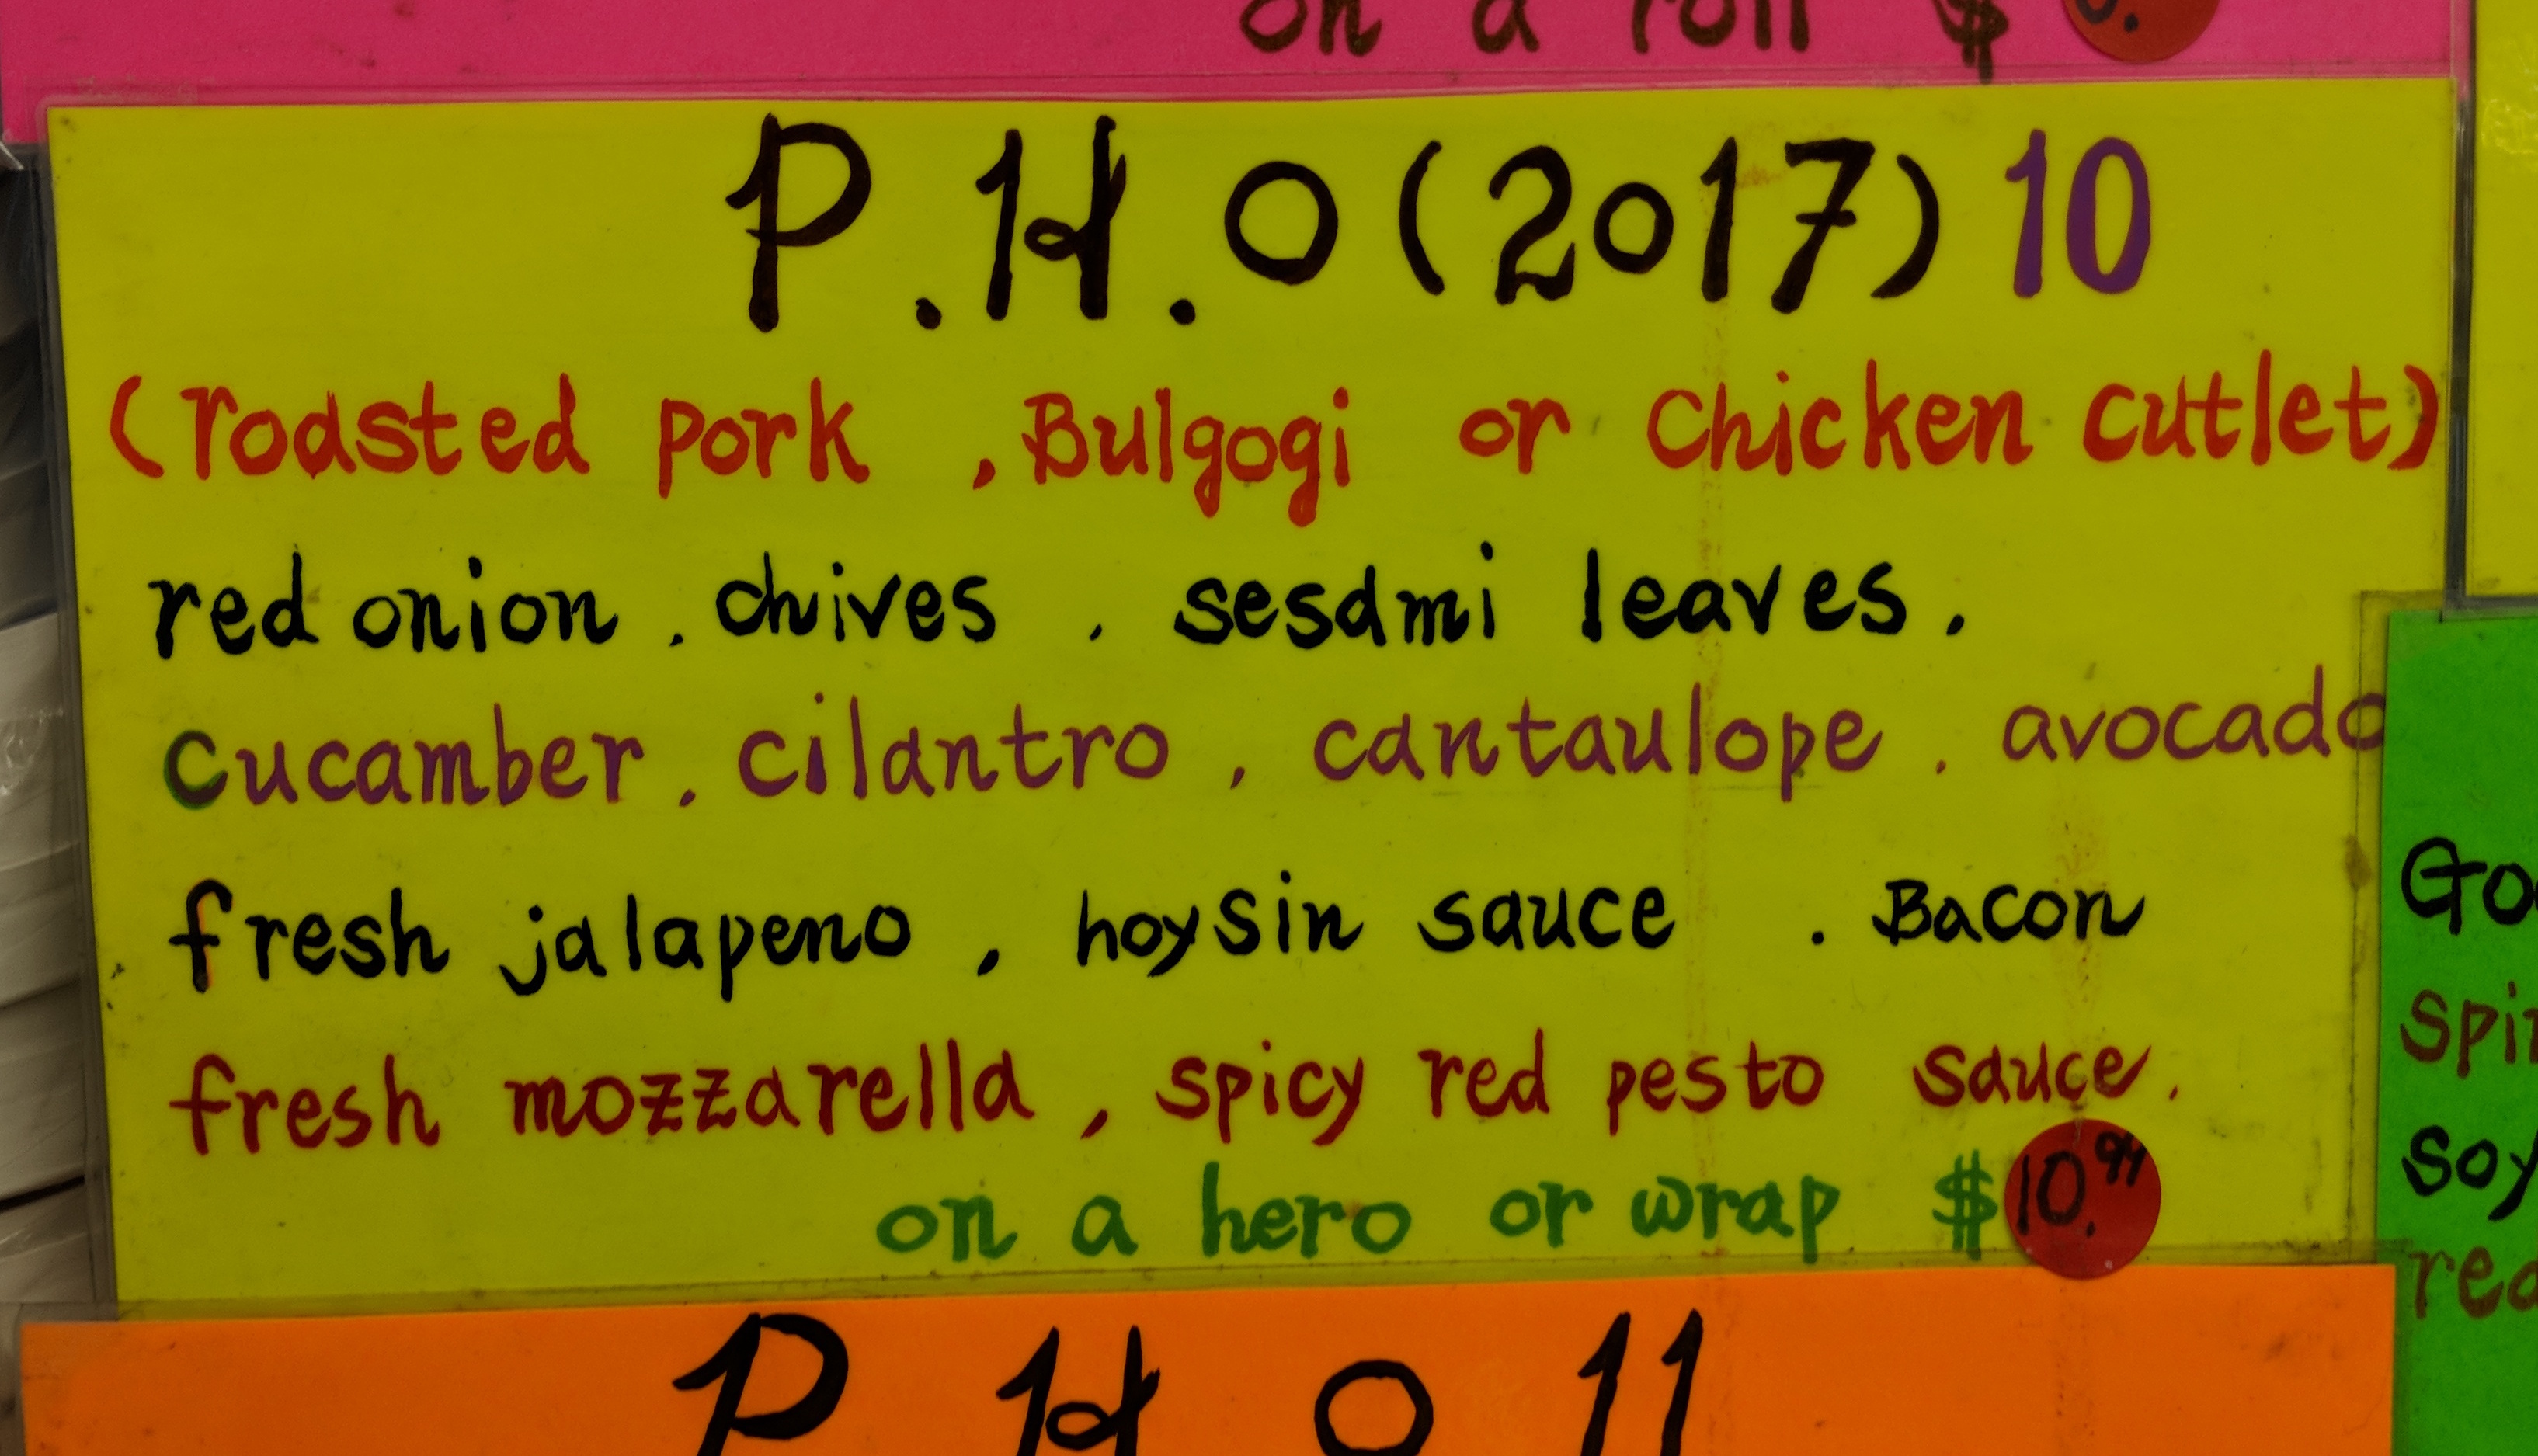 on a roll $
P.H.O (2017) 10
(roasted pork , Bulgogi or Chicken cutlet)
red onion . chives . sesami leaves .
cucamber . cilantro , cantaulope . avocado
fresh jalapeno , hoysin sauce . Bacon
fresh mozzarella , spicy red pesto sauce .
on a hero or wrap $10.99
P H O 11
soy